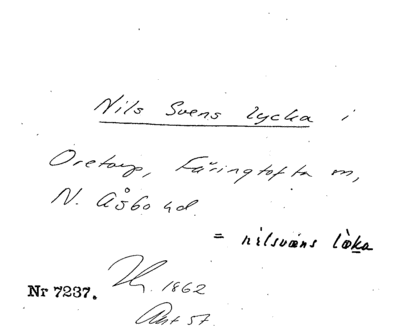 Nils Svens lycka i
Oretorp, Färingtofta sn,
N. Åsbo hd.
= nilsvæns lòka
Nr 7237.
1862